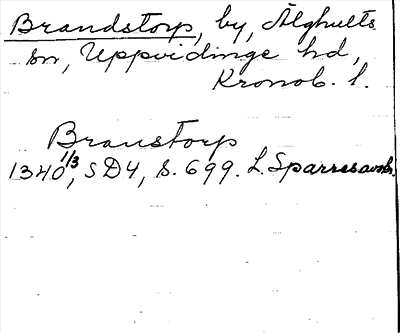 Brandstorp, by, Älghults
sn, Uppvidinge hd,
Kronob. l.
Branstorp
1340 1/3, SD4, s. 699. L. Sparresavskr.